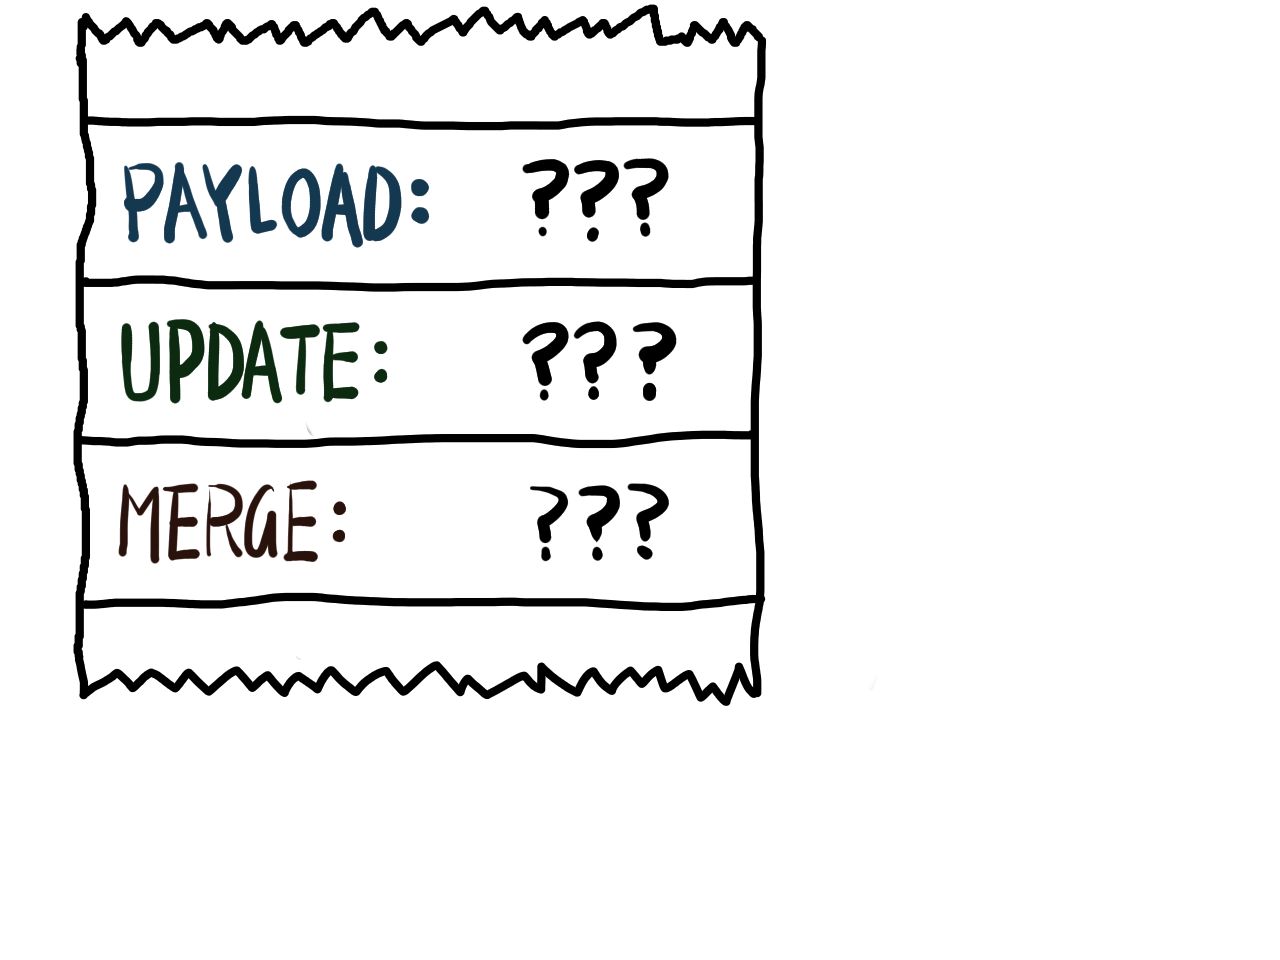 PAYLOAD: ???
UPDATE: ???
MERGE: ???